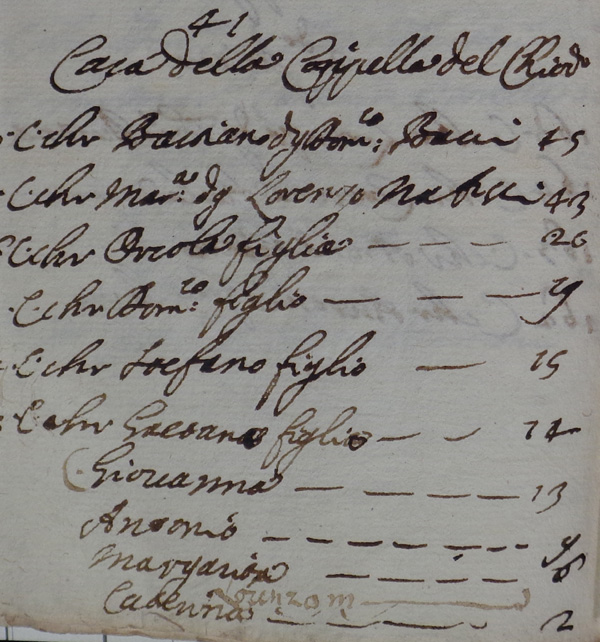 41
Casa della Cappella del Chiodo
C: chr Bassiano dg Dom.co: Bacci 45
C: chr Mar.a: dg Lorenzo 43
C: chr Orsola figlia — — — 26
C: chr Dom.co: figlio — — — 19
C: chr Stefano figlio — 15
C: chr Gaetano figlio — — 14
Giovanna — — — — 13
Antonio — — — — — — 9
Margarita — — — — 6
Caterina — — — — 2